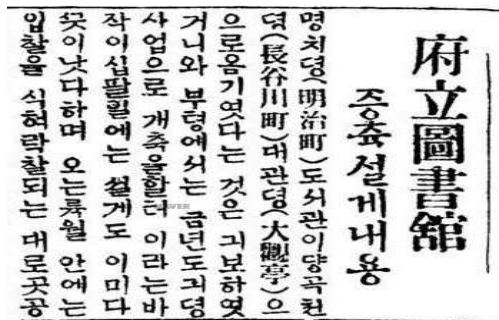 府立圖書館
증축설게내용
명치뎡(明治町)도서관이댱곡쳔
뎡(長谷川町)대관뎡(大觀亭)으
으로옴기엿다는 것은 긔보하엿
거니와 부텽에서는 금년도긔뎡
사업으로 개축을할터 이라는바
작이십팔일에는 설게도 이미다
끗이낫다하며 오는륙월 안에는
입찰을 식혀락찰되는 대로곳공